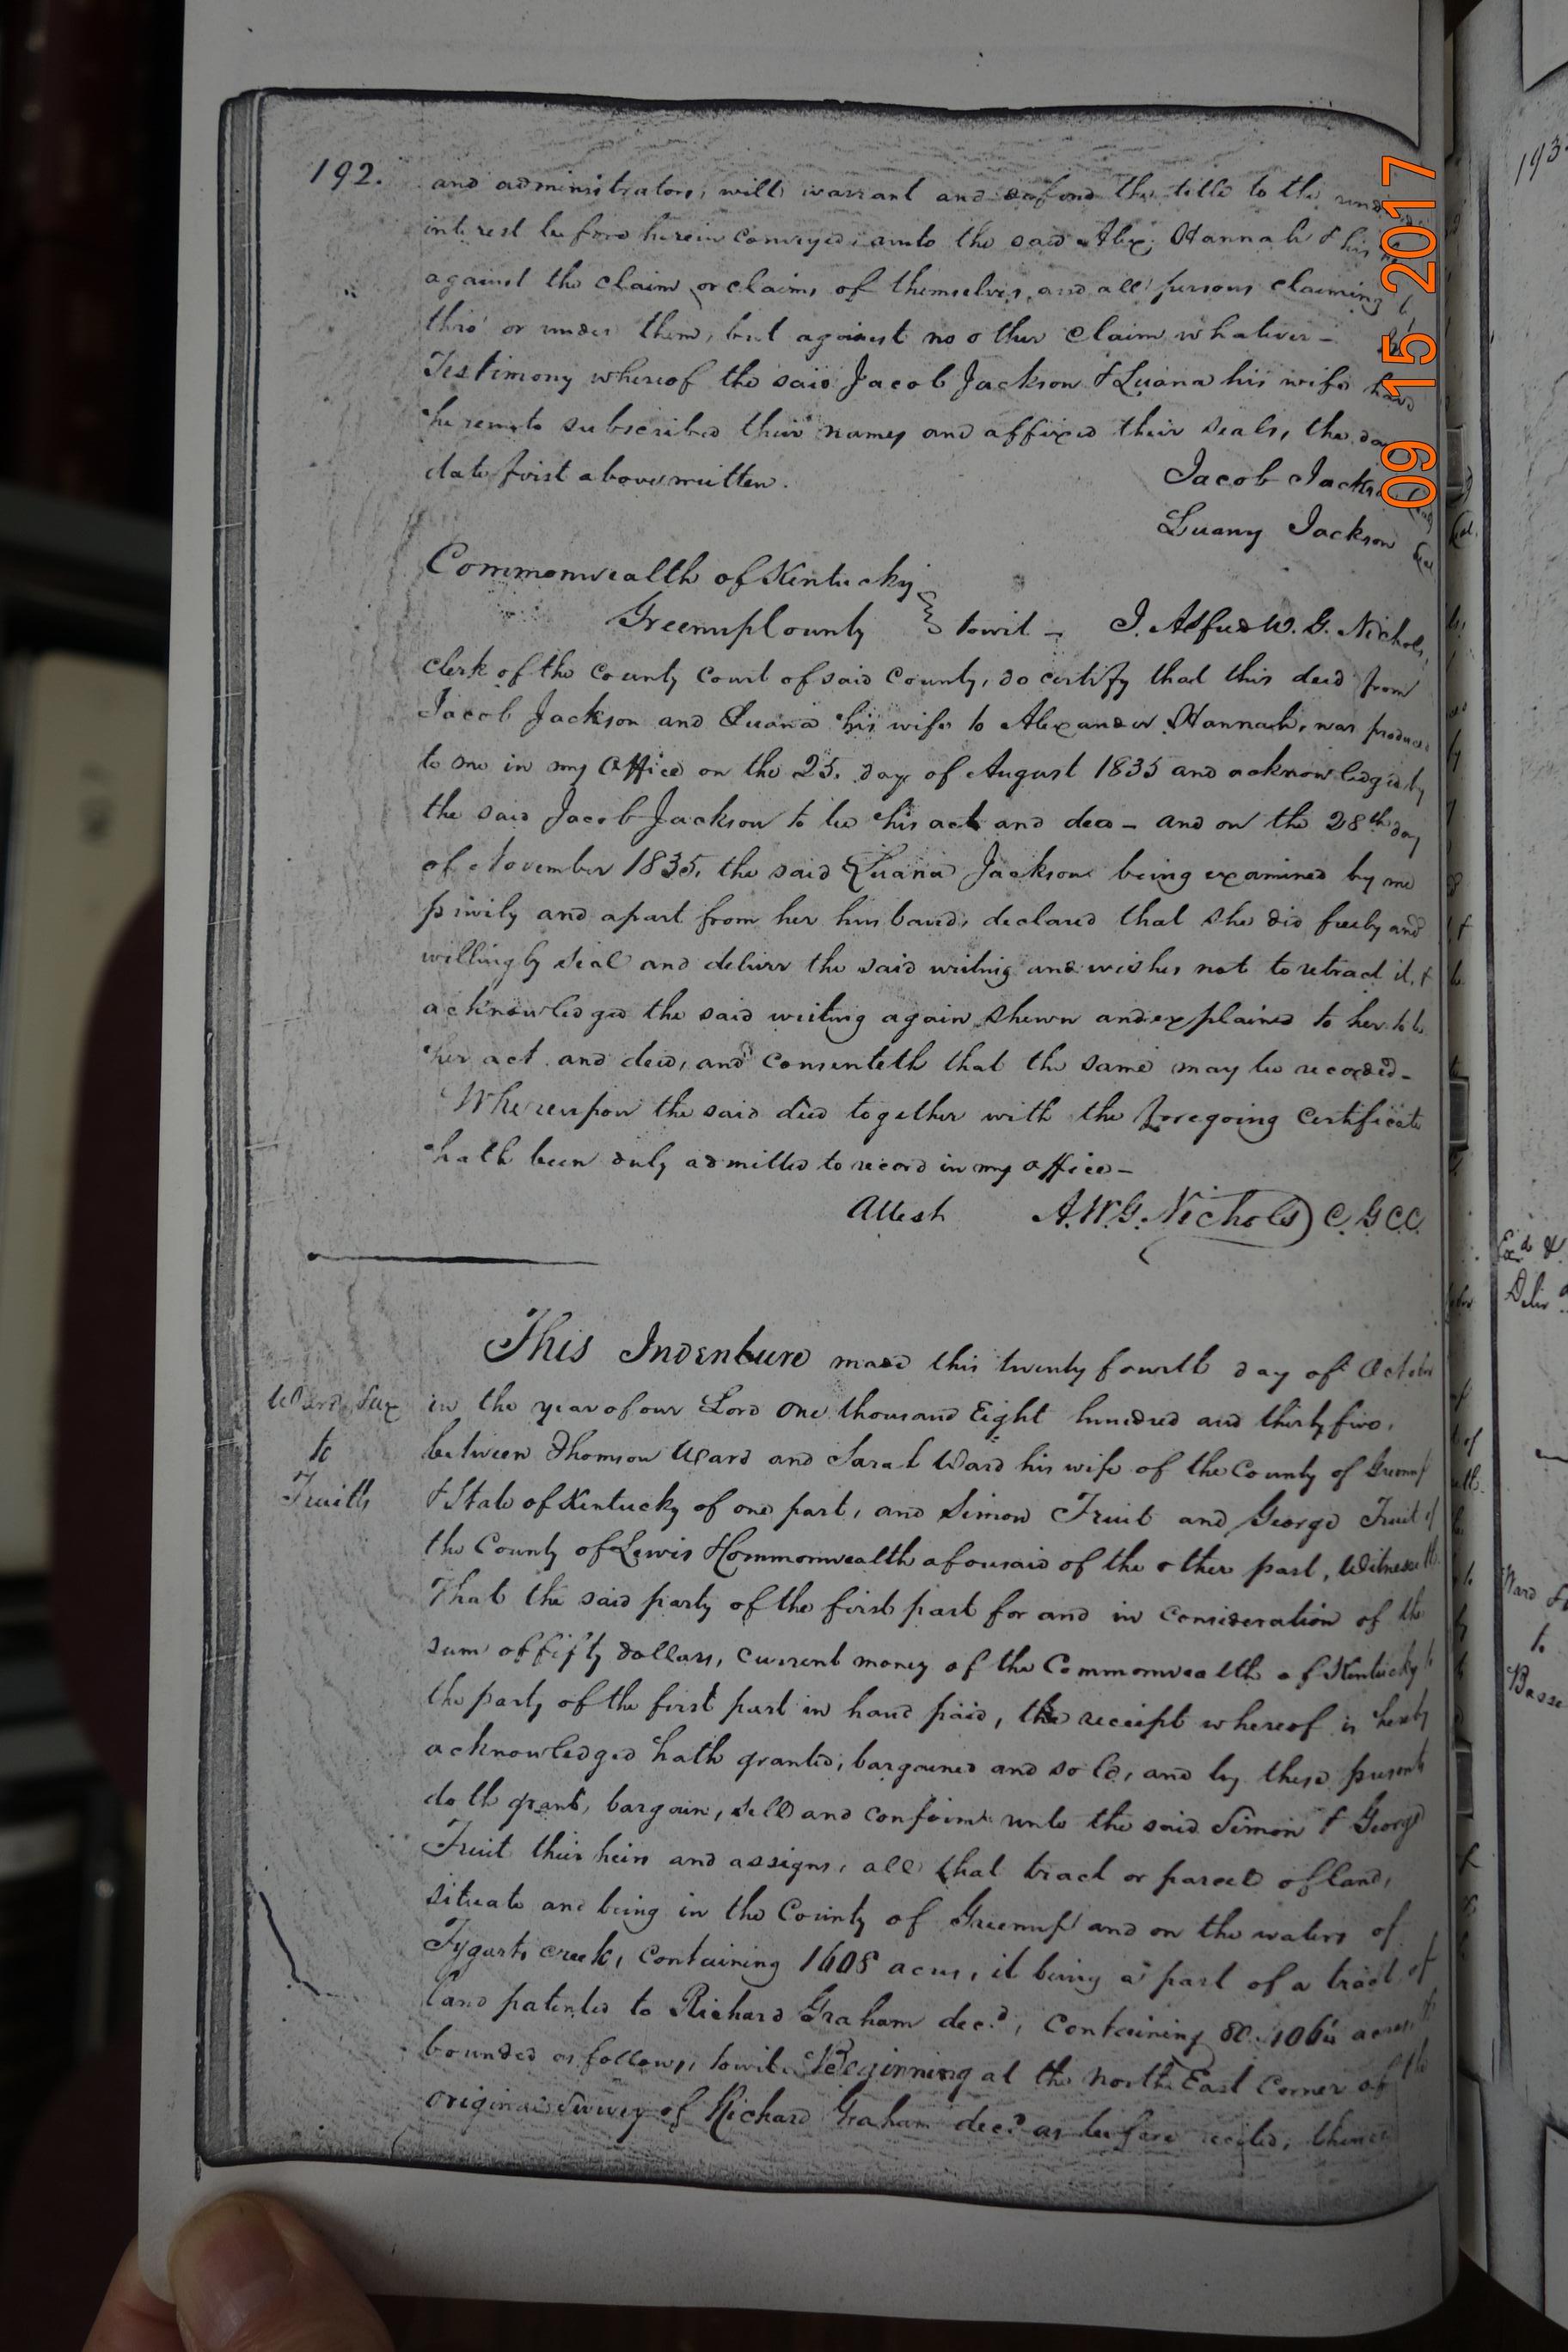 192.
and administrators, will warrant and defend the title to the
interest before herein conveyed unto the said Alex; Hannah & his
against the claim or claims of themselves, and all persons claiming
thro' or under them, but against no other claim whatever —
Testimony whereof the said Jacob Jackson & Luana his wife have
hereunto subscribed their names and affixed their seals, the day
date first above written.
Jacob Jackson
Luany Jackson
Commonwealth of Kentucky
Greenup County } towit — I. Alfred W. G. Nichols,
clerk of the county court of said county, do certify that this deed from
Jacob Jackson and Luana his wife to Alexander Hannah, was produced
to me in my office on the 25. day of August 1835 and acknowledged by
the said Jacob Jackson to be his act and deed — and on the 28th day
of November 1835, the said Luana Jackson being examined by me
privily and apart from her husband, declared that she did freely and
willingly seal and deliver the said writing and wishes not to retract it, &
acknowledged the said writing again shewn and explained to her to be
her act and deed, and consenteth that the same may be recorded —
Whereupon the said deed together with the foregoing certificate
hath been duly admitted to record in my office —
Attest A. W. G. Nichols C. G C C.
This Indenture made this twenty fourth day of October
Ward &ux in the year of our Lord One thousand Eight hundred and thirty five,
to between Thomson Ward and Sarah Ward his wife of the County of Greenup
Fruitts & State of Kentucky of one part, and Simon Fruit and George Fruit of
the County of Lewis & Commonwealth aforesaid of the other part, Witnesseth
That the said party of the first part for and in consideration of the
sum of fifty dollars, current money of the Commonwealth of Kentucky to
the party of the first part in hand paid, the receipt whereof is hereby
acknowledged hath granted, bargained and sold, and by these presents
doth grant, bargain, sell and confirm unto the said Simon & George
Fruit their heirs and assigns, all that tract or parcel of land,
situate and being in the County of Greenup and on the waters of
Tygarts creek, containing 1608 acres, it being a part of a tract of
land patented to Richard Graham decd, containing acres,
bounded as follows, towit. Beginning at the North East corner of the
original survey of Richard Graham decd as before recited, thence
09 15 2017
193
Exd &
Deliv
Ward &
to
Basse